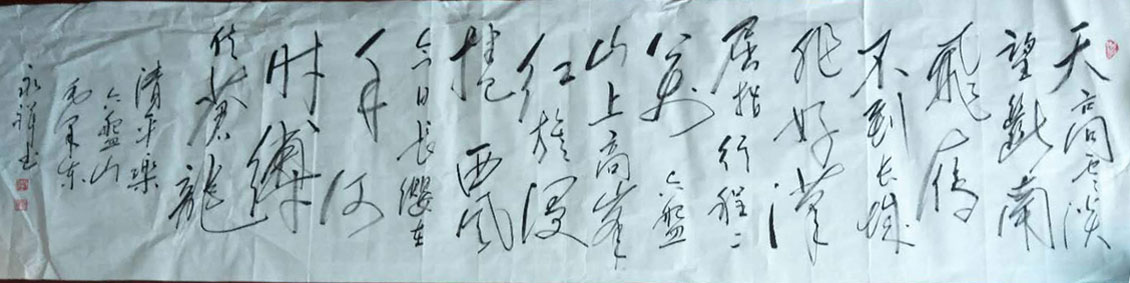 天高云淡
望断南
飞雁
不到长城
非好汉
屈指行程二
万六盘
山上高峰
红旗漫
捲西风
今日长缨在
手何
时缚
住苍龙
清平乐
六盘山
毛泽东
永祥书